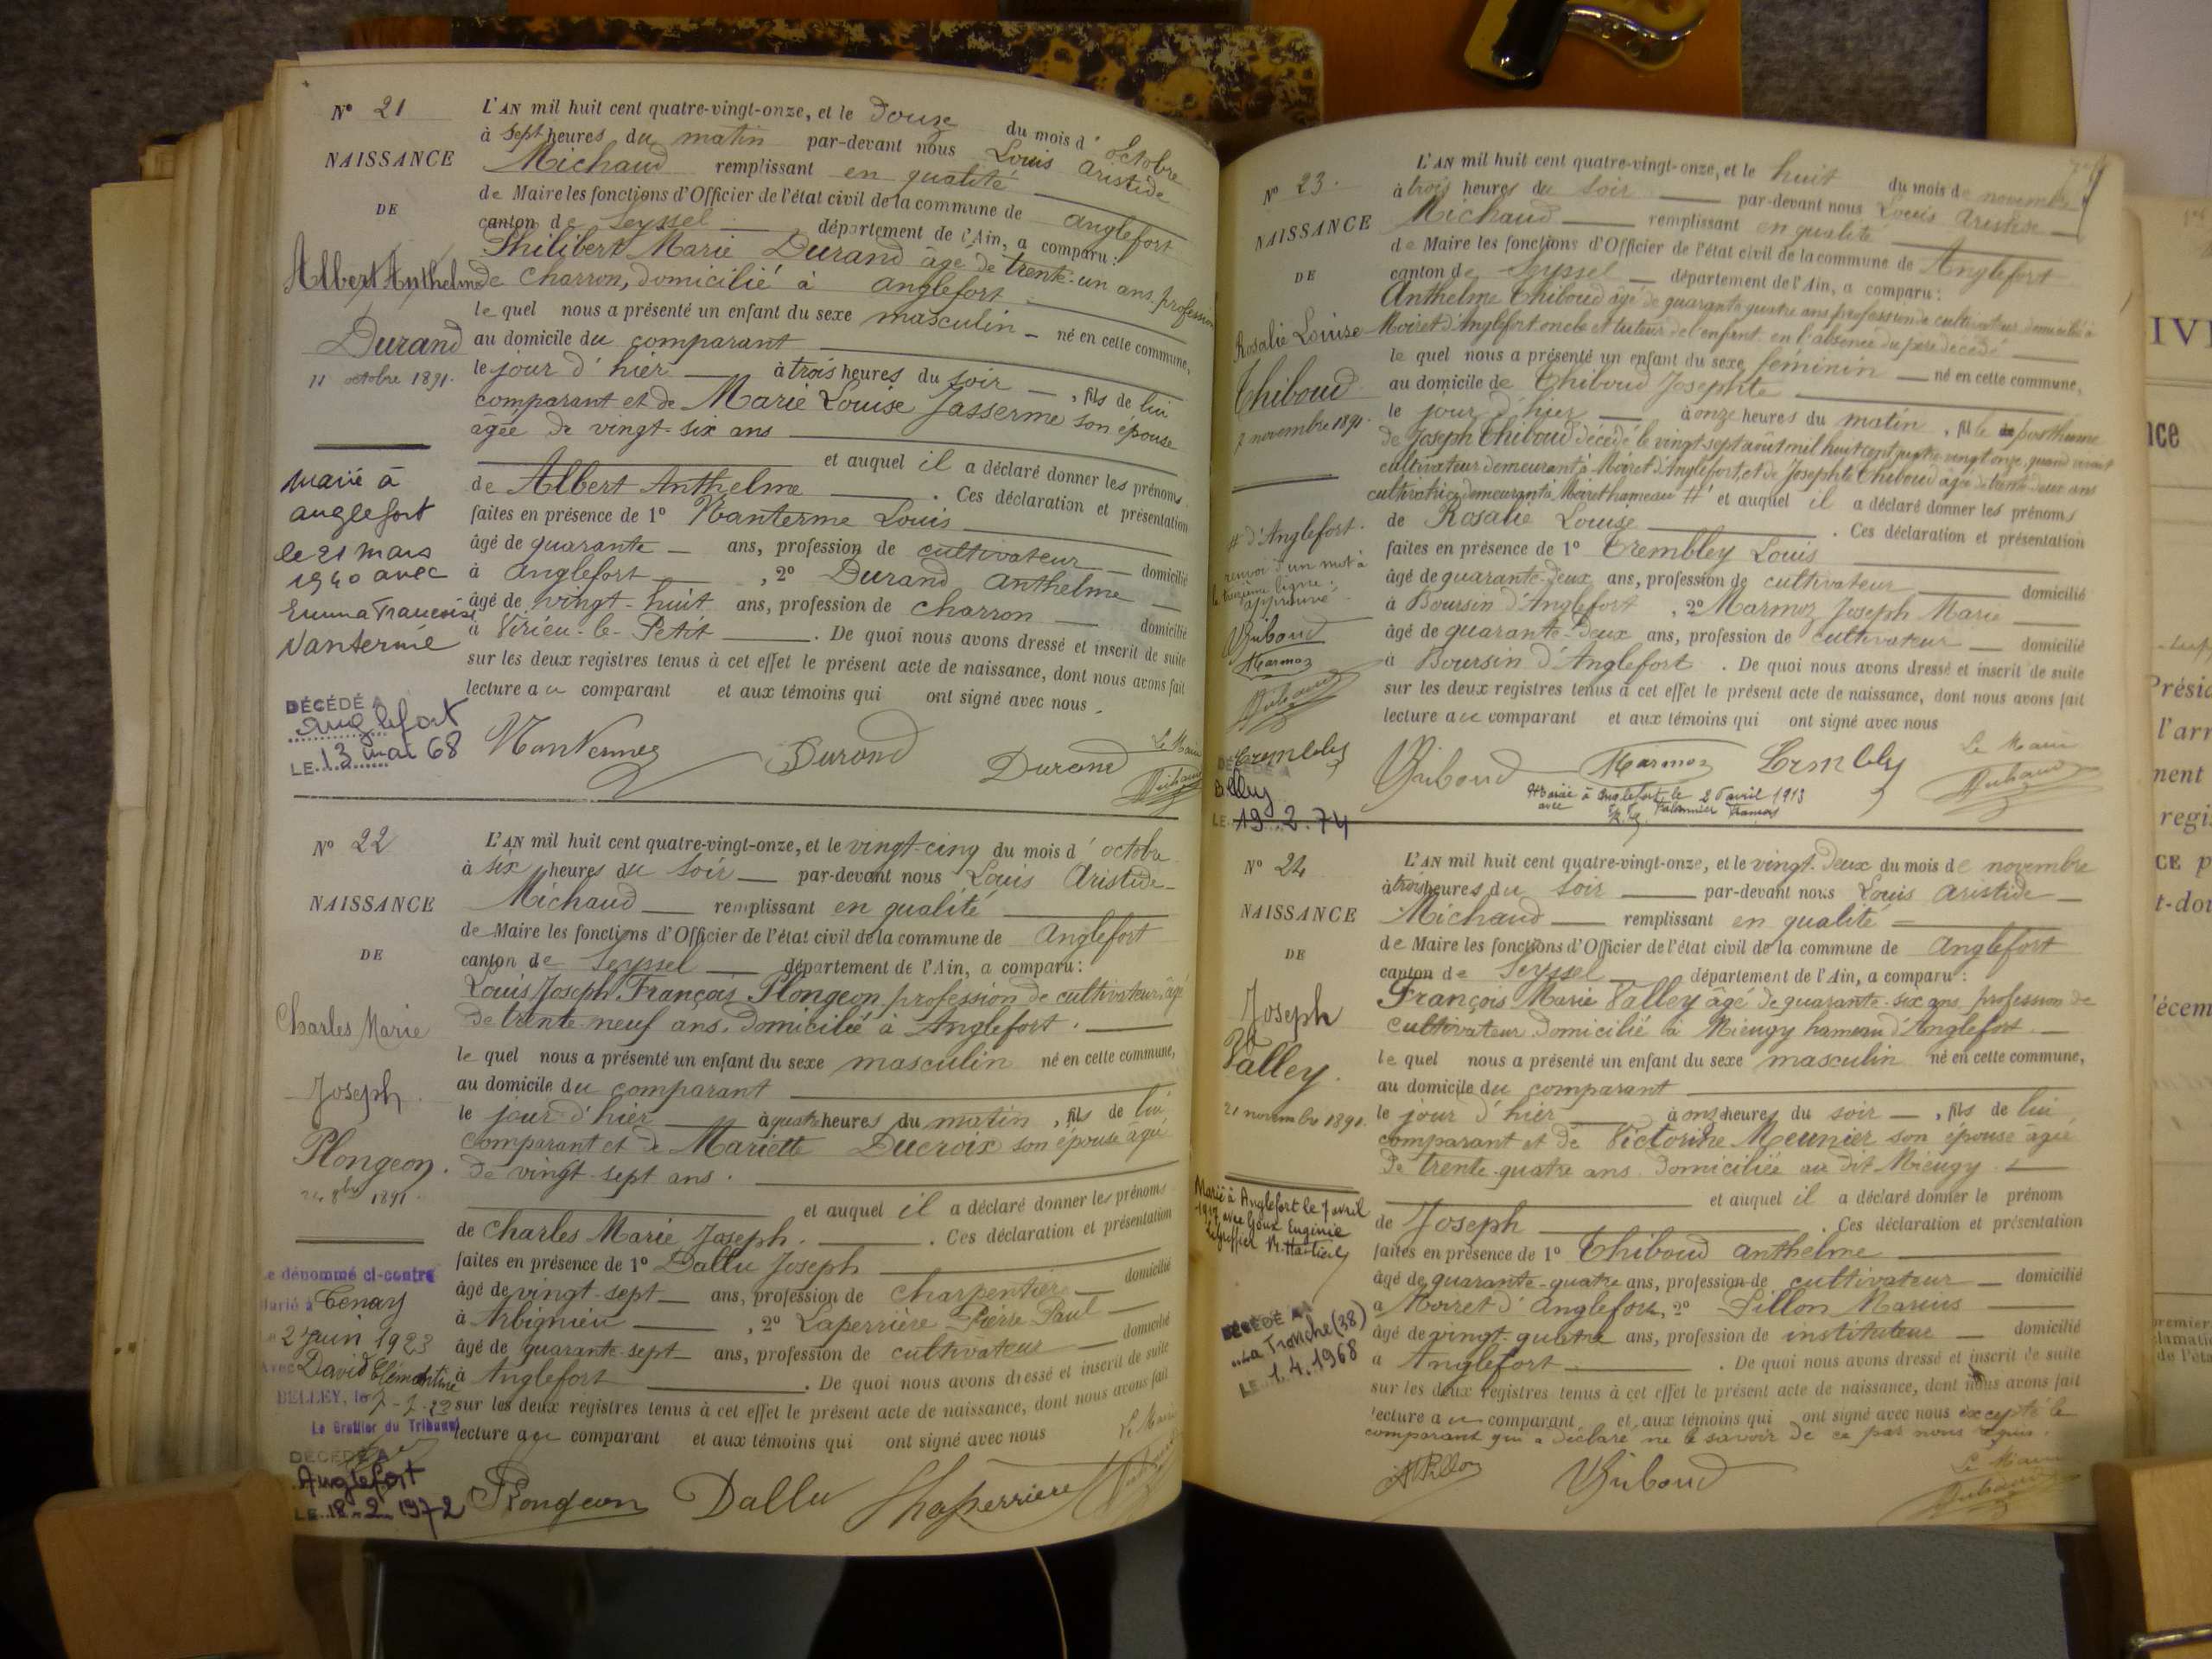 N° 21
NAISSANCE
DE
Albert Anthelme
Durand
11 octobre 1891.
marié à
anglefort
le 21 mars
1940 avec
Emma Françoise
Nanterme
DÉCÉDÉ A
Anglefort
LE 13 mai 68
L'AN mil huit cent quatre-vingt-onze, et le douze du mois d'octobre
à sept heures du matin par-devant nous Louis Aristide
Michaud remplissant en qualité
de Maire les fonctions d'Officier de l'état civil de la commune de anglefort
canton de Seyssel département de l'Ain, a comparu :
Philibert Marie Durand âgé de trente-un ans, profession
de charron, domicilié à anglefort
lequel nous a présenté un enfant du sexe masculin né en cette commune,
au domicile du comparant
le jour d'hier à trois heures du soir, fils de lui
comparant et de Marie Louise Jasserme son épouse
âgée de vingt-six ans
et auquel il a déclaré donner les prénoms
de Albert Anthelme. Ces déclaration et présentation
faites en présence de 1° Nanterme Louis
âgé de quarante ans, profession de cultivateur domicilié
à anglefort, 2° Durand anthelme
âgé de vingt-huit ans, profession de charron domicilié
à Virieu-le-Petit. De quoi nous avons dressé et inscrit de suite
sur les deux registres tenus à cet effet le présent acte de naissance, dont nous avons fait
lecture au comparant et aux témoins qui ont signé avec nous.
Le Maire
Durand Durand
N° 22
NAISSANCE
DE
Charles Marie
Joseph
Plongeon.
24 8bre 1891.
Le dénommé ci-contre
Marié à Tenay
le 2 Juin 1923
AVEC David Clémentine
BELLEY, le 7-7-23
Le Greffier du Tribunal
DÉCÉDÉ A
Anglefort
LE 18-2-1972
L'AN mil huit cent quatre-vingt-onze, et le vingt-cinq du mois d'octobre
à six heures du soir par-devant nous Louis Aristide
Michaud remplissant en qualité
de Maire les fonctions d'Officier de l'état civil de la commune de anglefort
canton de Seyssel département de l'Ain, a comparu :
Louis Joseph François Plongeon profession de cultivateur, âgé
de trente-neuf ans, domicilié à Anglefort.
lequel nous a présenté un enfant du sexe masculin né en cette commune,
au domicile du comparant
le jour d'hier à quatre heures du matin, fils de lui
comparant et de Mariette Ducroix son épouse âgée
de vingt-sept ans.
et auquel il a déclaré donner les prénoms
de Charles Marie Joseph. Ces déclaration et présentation
faites en présence de 1° Dallu Joseph
âgé de vingt-sept ans, profession de charpentier domicilié
à Arbignieu, 2° Laperrière Pierre Paul
âgé de quarante-sept ans, profession de cultivateur domicilié
à Anglefort. De quoi nous avons dressé et inscrit de suite
sur les deux registres tenus à cet effet le présent acte de naissance, dont nous avons fait
lecture au comparant et aux témoins qui ont signé avec nous
Le Maire
Plongeon Dallu Laperrière
N° 23.
NAISSANCE
DE
Rosalie Louise
Thiboud
7 novembre 1891.
# d'Anglefort.
renvoi & un mot à
la treizième ligne :
approuvé
Marmoz
Trembley
DÉCÉDÉ A
Belley
LE 19.2.74
L'AN mil huit cent quatre-vingt-onze, et le huit du mois de novembre
à trois heures du soir par-devant nous Louis Aristide
Michaud remplissant en qualité
de Maire les fonctions d'Officier de l'état civil de la commune de Anglefort
canton de Seyssel département de l'Ain, a comparu :
Anthelme Thiboud âgé de quarante quatre ans profession de cultivateur domicilié à
Moiret d'Anglefort oncle et tuteur de l'enfant en l'absence du père décédé
lequel nous a présenté un enfant du sexe féminin né en cette commune,
au domicile de Thiboud Josephte
le jour d'hier à onze heures du matin, fille posthume
de Joseph Thiboud décédé le vingt sept août mil huit cent quatre-vingt onze, quand vivant
cultivateur demeurant à Moiret d'Anglefort, et de Josephte Thiboud âgée de trente-deux ans
cultivatrice demeurant à Moiret hameau # et auquel il a déclaré donner les prénoms
de Rosalie Louise. Ces déclaration et présentation
faites en présence de 1° Trembley Louis
âgé de quarante-deux ans, profession de cultivateur domicilié
à Boursin d'Anglefort, 2° Marmoz Joseph Marie
âgé de quarante-deux ans, profession de cultivateur domicilié
à Boursin d'Anglefort. De quoi nous avons dressé et inscrit de suite
sur les deux registres tenus à cet effet le présent acte de naissance, dont nous avons fait
lecture au comparant et aux témoins qui ont signé avec nous
Le Maire
Thiboud Marmoz Trembley
Mariée à Anglefort le 26 avril 1913
avec
N° 24
NAISSANCE
DE
Joseph
Valley.
21 novembre 1891.
Marié à Anglefort le 7 avril
1917 avec Goux Eugénie
Le greffier
DÉCÉDÉ A
La Tronche (38)
LE 1.4.1968
L'AN mil huit cent quatre-vingt-onze, et le vingt-deux du mois de novembre
à trois heures du soir par-devant nous Louis Aristide
Michaud remplissant en qualité
de Maire les fonctions d'Officier de l'état civil de la commune de anglefort
canton de Seyssel département de l'Ain, a comparu :
François Marie Valley âgé de quarante-six ans, profession de
cultivateur domicilié à Mieugy hameau d'Anglefort.
lequel nous a présenté un enfant du sexe masculin né en cette commune,
au domicile du comparant
le jour d'hier à onze heures du soir, fils de lui
comparant et de Victorine Meunier son épouse âgée
de trente-quatre ans domiciliée au dit Mieugy.
et auquel il a déclaré donner le prénom
de Joseph. Ces déclaration et présentation
faites en présence de 1° Thiboud anthelme
âgé de quarante-quatre ans, profession de cultivateur domicilié
à Moiret d'anglefort, 2° Pillon Marius
âgé de vingt-quatre ans, profession de instituteur domicilié
à Anglefort. De quoi nous avons dressé et inscrit de suite
sur les deux registres tenus à cet effet le présent acte de naissance, dont nous avons fait
lecture au comparant et aux témoins qui ont signé avec nous excepté le
comparant qui a déclaré ne le savoir de ce par nous requis.
Le Maire
Pillon Thiboud